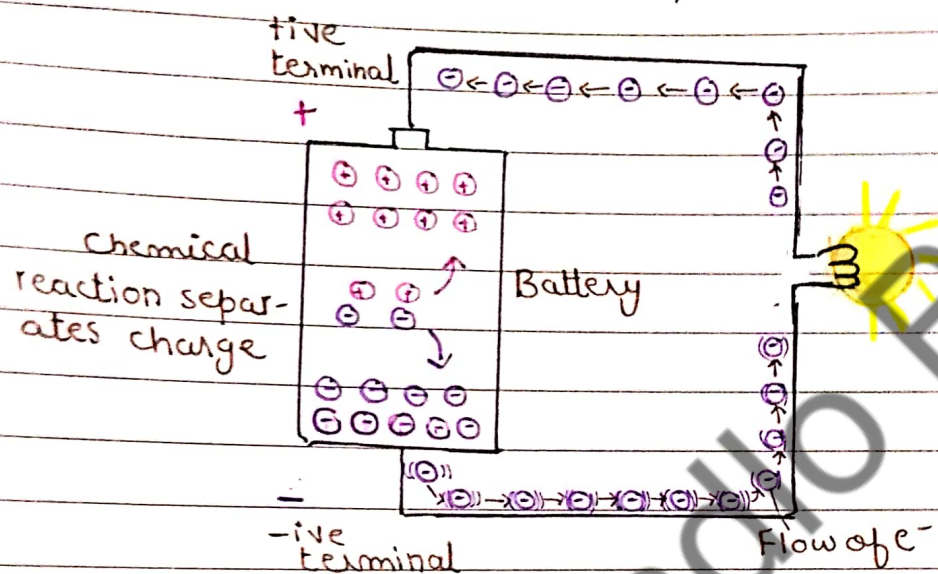 +ive
terminal
+
Chemical
reaction separ-
ates charge
Battery
–
-ive
terminal
Flow of e⁻